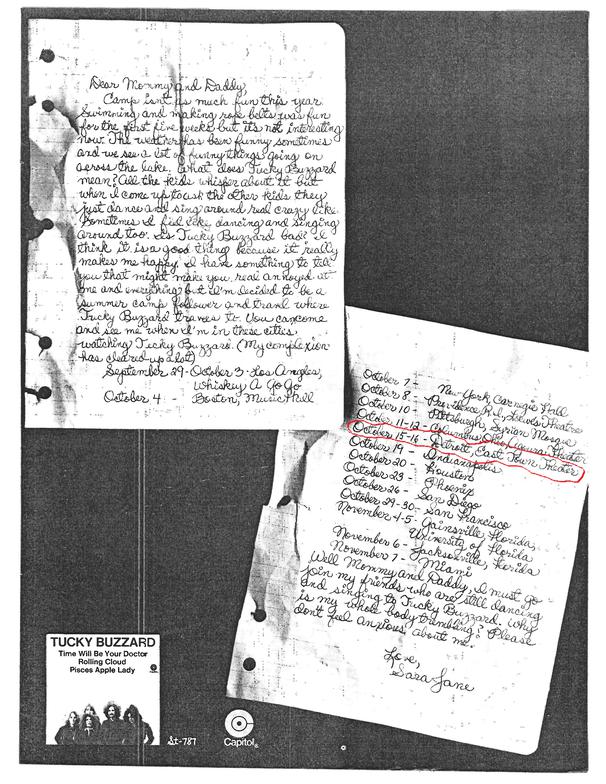 Dear Mommy and Daddy,
Camp isn't as much fun this year.
Swimming and making rope belts was fun
for the first five weeks but it's not interesting
now. The weather has been funny sometimes
and we see a lot of funny things going on
across the lake. What does Tucky Buzzard
mean? All the kids whisper about it but
when I come up to ask the other kids they
just dance and sing around real crazy like.
Sometimes I feel like dancing and singing
around too. Is Tucky Buzzard bad? I
think it is a good thing because it really
makes me happy. I have something to tell
you that might make you real annoyed at
me and everything but I'm decided to be a
summer camp follower and travel where
Tucky Buzzard travels to. You can come
and see me when I'm in these cities
watching Tucky Buzzard. (My complexion
has cleared up a lot)
September 29-October 3-Los Angles,
Whiskey A Go Go
October 4 - Boston, Music Hall
October 7 - New York, Carnegie Hall
October 8 - Providence R.I., Loews Theatre
October 10 - Pittsburgh, Syrian Mosque
October 11-12 - Columbus Ohio, Theater
October 15-16 - Detroit, East Town Theater
October 19 - Indianapolis
October 20 - Houston
October 23 - Phoenix
October 26 - San Diego
October 29-30 - San Francisco
November 4-5 - Gainsville, Florida,
University of Florida
November 6 - Jacksonville, Florida
November 7 - Miami
Well Mommy and Daddy, I must go
join my friends who are still dancing
and singing to Tucky Buzzard. Why
is my whole body trembling? Please
don't feel anxious about me.
Love,
Sara Jane
TUCKY BUZZARD
Time Will Be Your Doctor
Rolling Cloud
Pisces Apple Lady
St-787
Capitol®